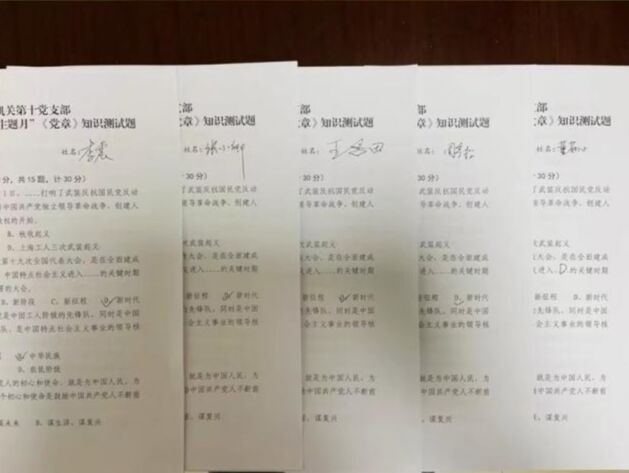 机关第十党支部
主题月”《党章》知识测试题
姓名:李震
分，共15题，计30分）
1日，……打响了武装反抗国民党反动
中国共产党独立领导革命战争、创建人
政权的开始。
B.秋收起义
D.上海工人三次武装起义
第十九次全国代表大会，是在全面建成
中国特点社会主义进入……的关键时期
要的大会。
B.新阶段 C.新征程 D.新时代
是中国工人阶级的先锋队，同时是中国
队，是中国特点社会主义事业的领导核
中华民族
D.殷低阶级
党人的初心和使命，就是为中国人民，为
个初心和使命是激励中国共产党人不断前
D.谋生活、谋复兴
支部
章》知识测试题
姓名:
计30分）
武装反抗国民党反动
领导革命战争、创建人
次武装起义
大会，是在全面建成
义进入……的关键时期
新征程 D.新时代
的先锋队，同时是中国
会主义事业的领导核
就是为中国人民，为
中国共产党人不断前
、谋复兴
部
章》知识测试题
姓名:
30分）
武装反抗国民党反动
领导革命战争、创建人
次武装起义
大会，是在全面建成
义进入……的关键时期
新征程 D.新时代
的先锋队，同时是中国
会主义事业的领导核
就是为中国人民，为
中国共产党人不断前
、谋复兴
部
章》知识测试题
姓名:
30分）
武装反抗国民党反动
领导革命战争、创建人
武装起义
大会，是在全面建成
进入……的关键时期
新征程 D.新时代
先锋队，同时是中国
会主义事业的领导核
就是为中国人民，为
中国共产党人不断前
谋复兴
部
章》知识测试题
姓名:
30分）
武装反抗国民党反动
领导革命战争、创建人
武装起义
大会，是在全面建成
进入…D…的关键时期
新征程 D.新时代
先锋队，同时是中国
会主义事业的领导核
就是为中国人民，为
中国共产党人不断前
谋复兴